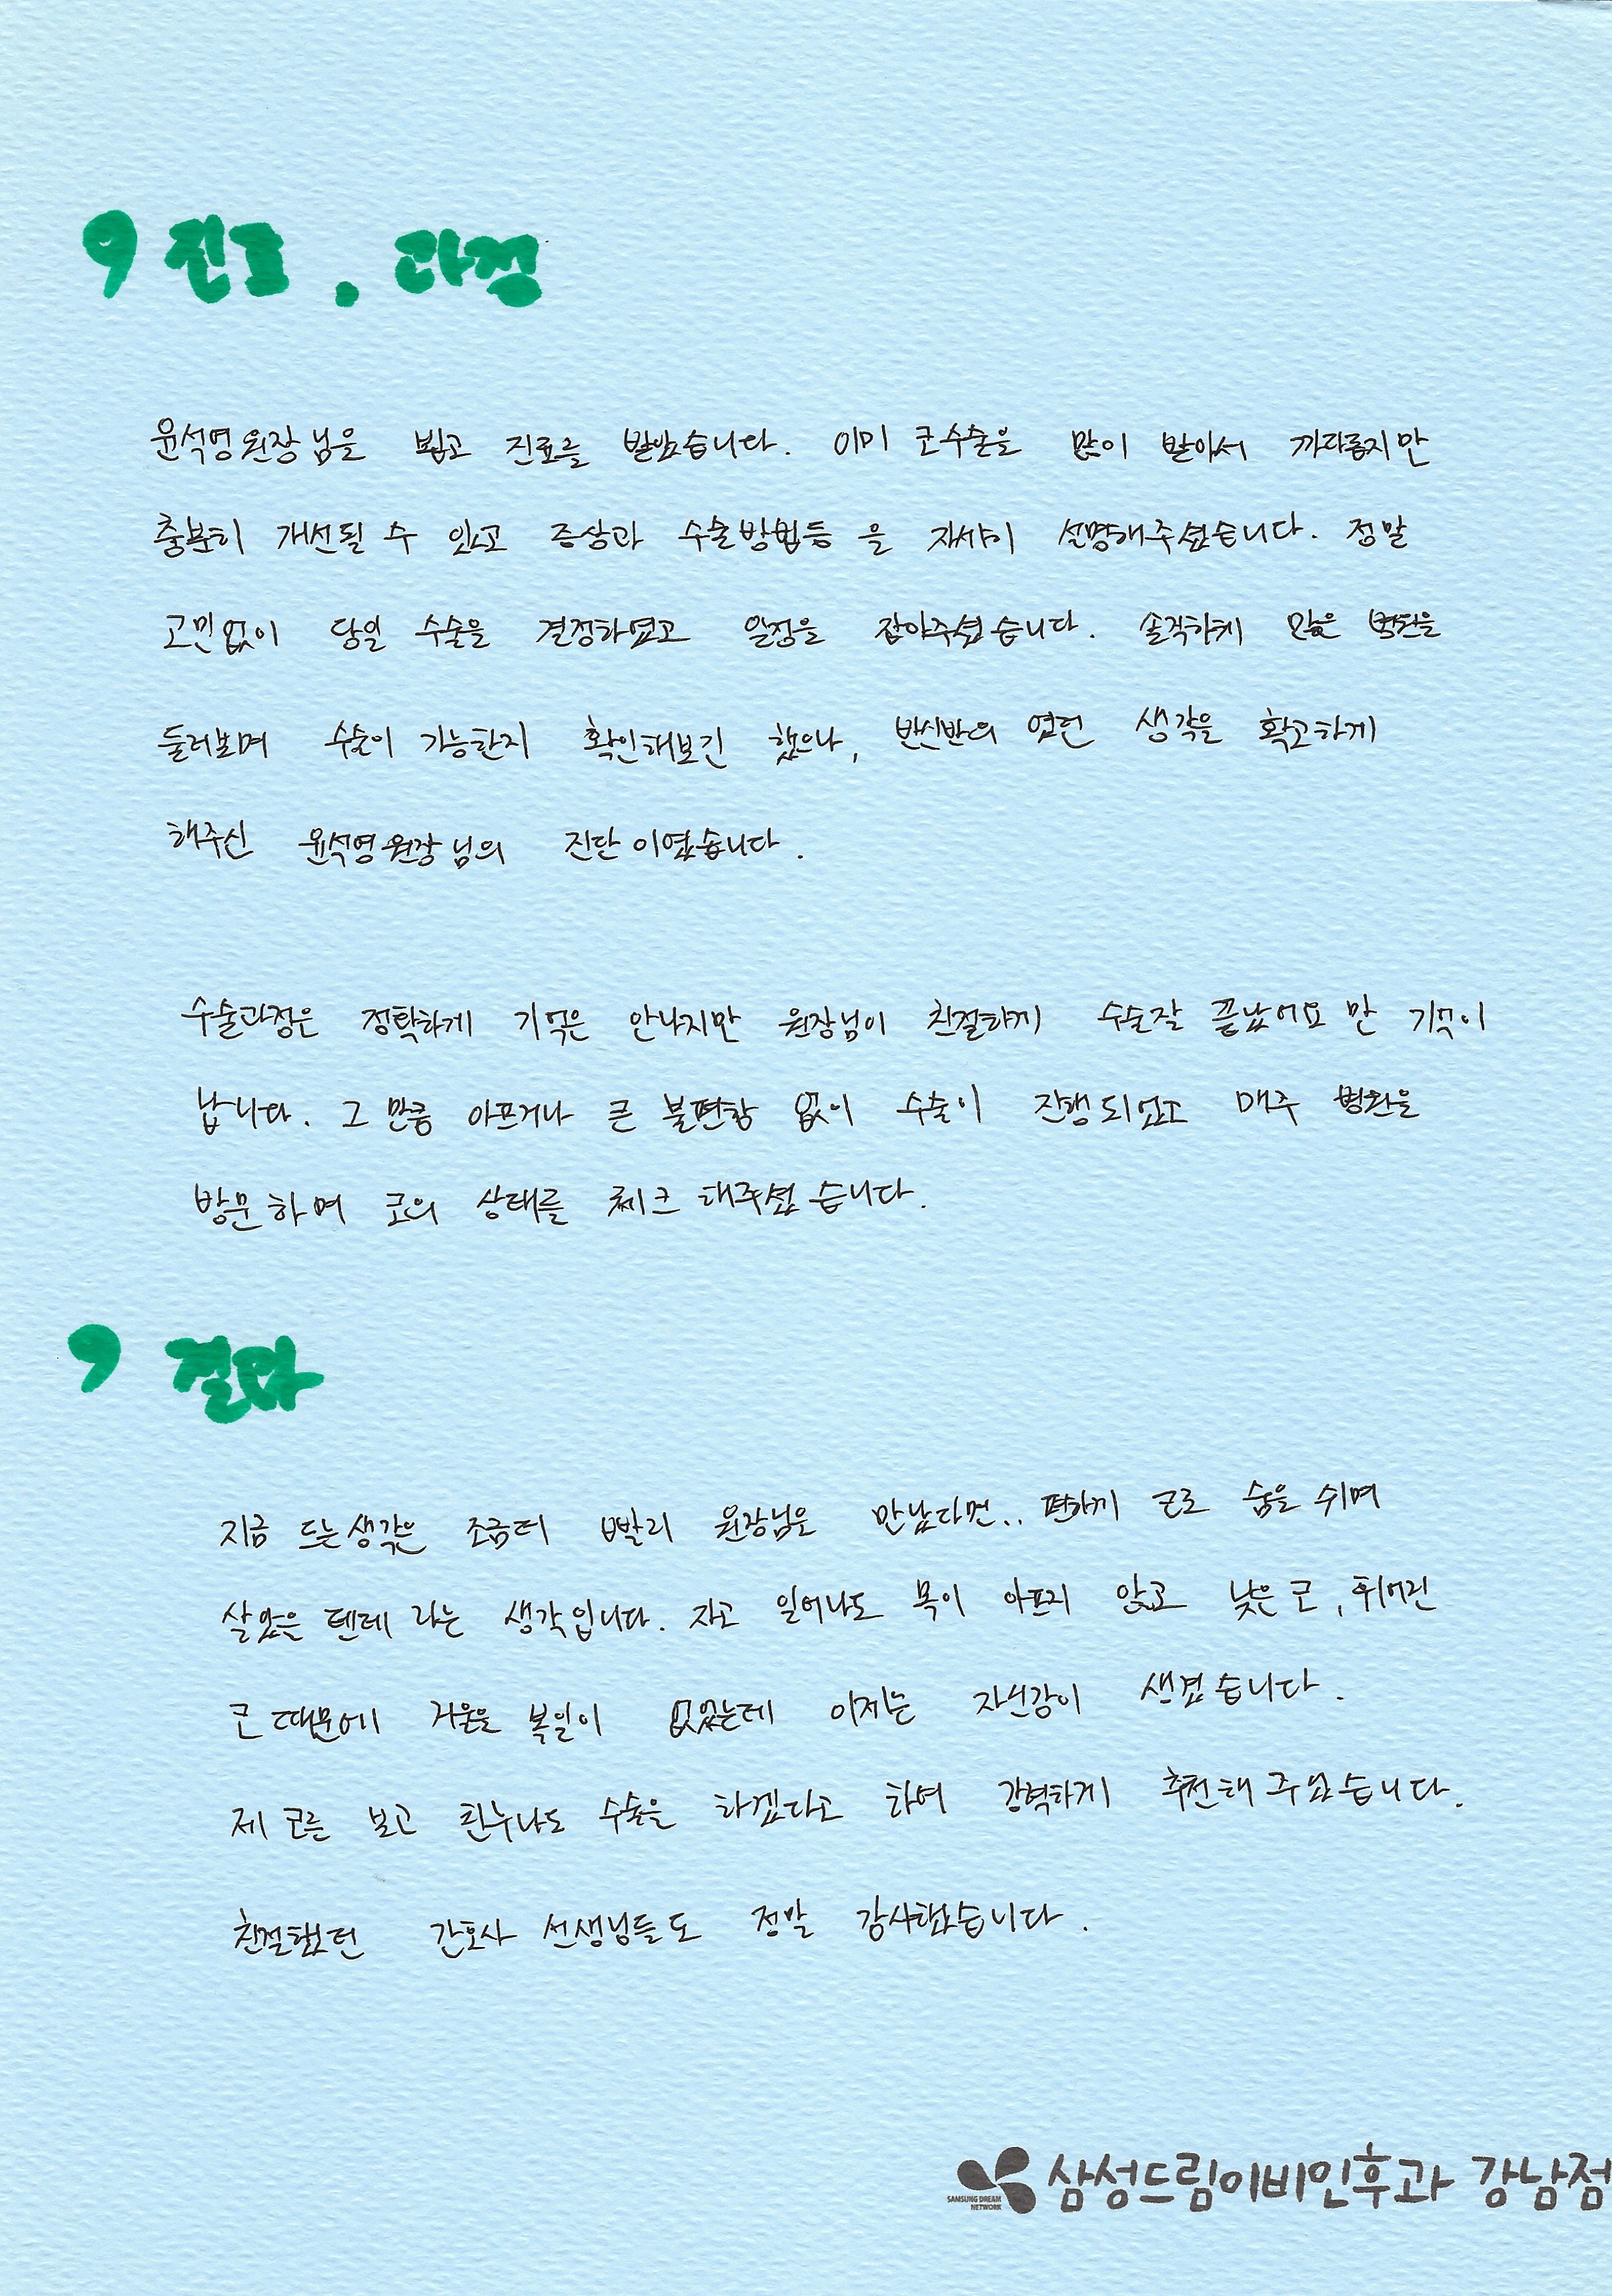 , 진료 . 과정
윤석영원장님을 뵙고 진료를 받았습니다. 이미 코수술을 많이 받아서 까다롭지만
충분히 개선될 수 있고 증상과 수술방법등 을 자세히 설명해주셨습니다. 정말
고민없이 당일 수술을 결정하였고 일정을 잡아주셨습니다. 솔직하게 많은 병원을
둘러보며 수술이 가능한지 확인해보긴 했으나, 반신반의 였던 생각을 확고하게
해주신 윤석영원장님의 진단이였습니다.
수술과정은 정확하게 기억은 안나지만 원장님이 친절하게 수술잘 끝났어요 만 기억이
납니다. 그 만큼 아프거나 큰 불편함 없이 수술이 진행되었고 매주 병원을
방문하며 코의 상태를 체크해주셨습니다.
, 결과
지금 드는생각은 조금더 빨리 원장님을 만났다면.. 편하게 코로 숨을 쉬며
살았을 텐데 라는 생각입니다. 자고 일어나도 목이 아프지 않고 낮은코, 휘어진
코 때문에 거울을 볼일이 없었는데 이제는 자신감이 생겼습니다.
제 코를 보고 친누나도 수술을 하겠다고 하여 강력하게 추천해 주었습니다.
친절했던 간호사 선생님들도 정말 감사했습니다.
SAMSUNG DREAM
NETWORK
삼성드림이비인후과 강남점